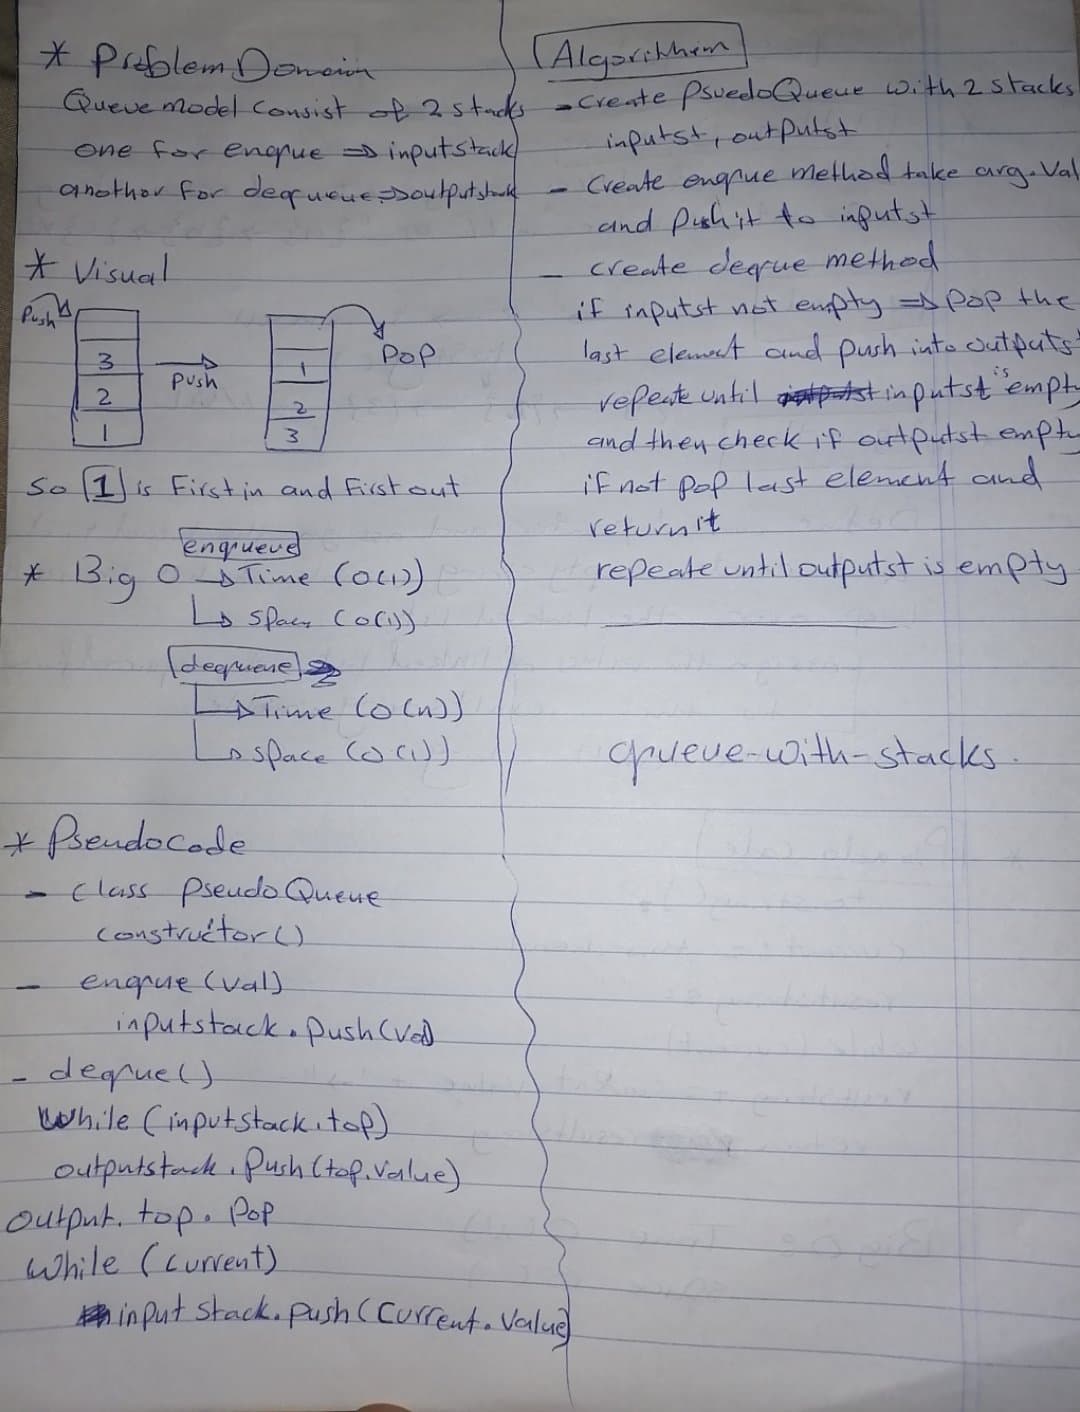 * Problem Domain
Queue model consist of 2 stacks
one for enqrue => inputstack
another for deqrueue => outputstack
* Visual
Push
3
2
1
Push
1
2
3
PoP
So [1] is First in and First out
enqrueue
* Big O -> Time (O(1))
-> space (O(1))
deqrueue
-> Time (O(n))
-> space (O(1))
* Pseudocode
- class PseudoQueue
constructor()
- enqrue (val)
inputstack.push(val)
- deqrue()
while (inputstack.top)
outputstack.Push(top.value)
output.top.PoP
while (current)
input stack.push(current.value)
Algorithhem
- Create PsuedoQueue with 2 stacks
inputst, outputst
- Create enqrue method take arg. Val
and Push it to inputst
- create deqrue method
if inputst not empty => PoP the
last element and push into outputst
repeate until inputst is empty
and then check if outputst empty
if not pop last element and
return it
repeate until outputst is empty
qrueue-with-stacks.